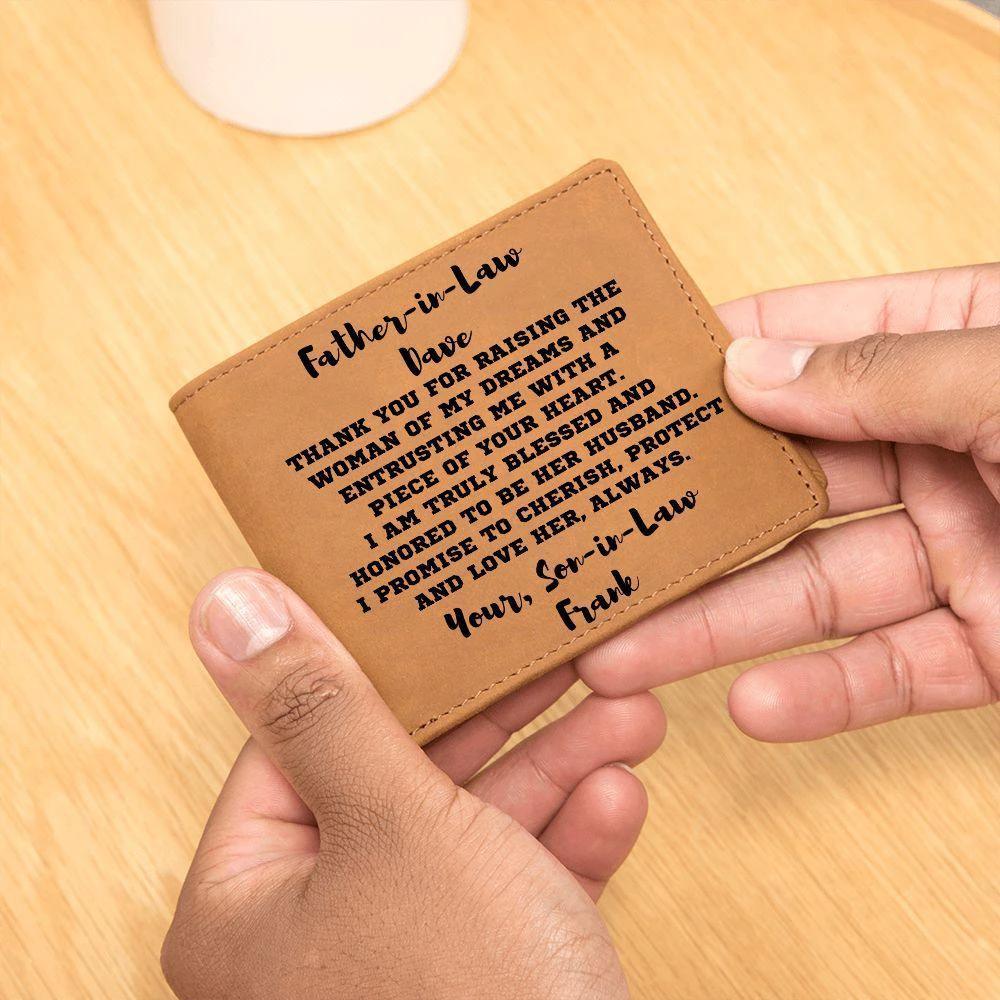 Father-in-Law
Dave
THANK YOU FOR RAISING THE
WOMAN OF MY DREAMS AND
ENTRUSTING ME WITH A
PIECE OF YOUR HEART.
I AM TRULY BLESSED AND
HONORED TO BE HER HUSBAND.
I PROMISE TO CHERISH, PROTECT
AND LOVE HER, ALWAYS.
Your, Son-in-Law
Frank